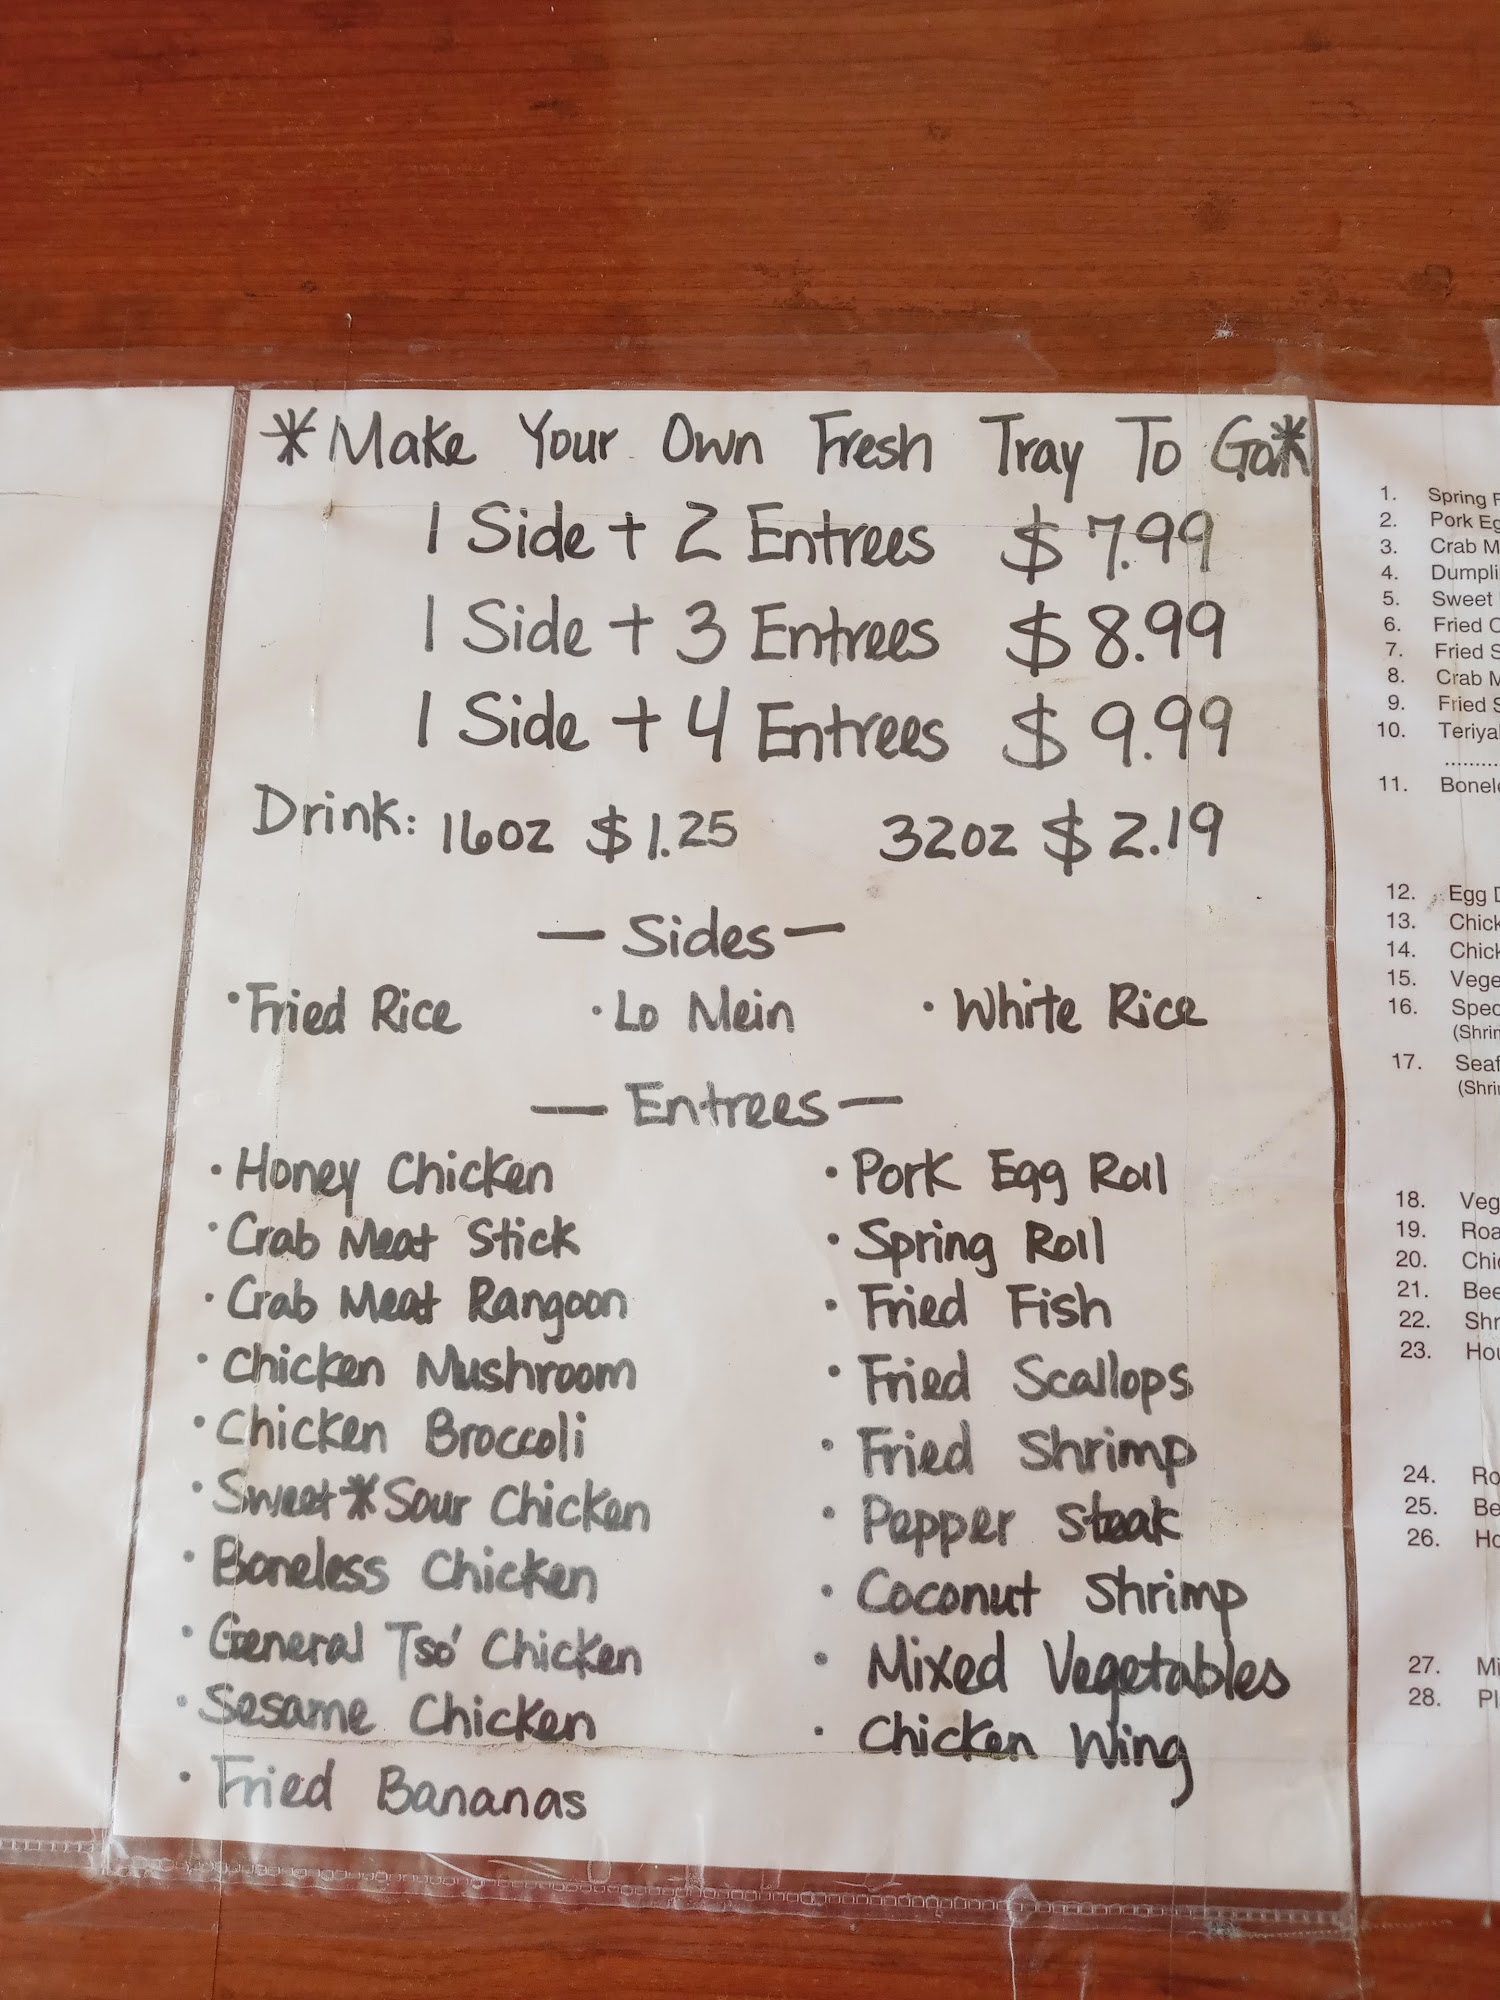 *Make Your Own Fresh Tray To Go*
1 Side + 2 Entrees $7.99
1 Side + 3 Entrees $8.99
1 Side + 4 Entrees $9.99
Drink: 16oz $1.25 32oz $2.19
— Sides —
· Fried Rice · Lo Mein · White Rice
— Entrees —
· Honey Chicken
· Crab Meat Stick
· Crab Meat Rangoon
· Chicken Mushroom
· Chicken Broccoli
· Sweet*Sour Chicken
· Boneless Chicken
· General Tso' Chicken
· Sesame Chicken
· Fried Bananas
· Pork Egg Roll
· Spring Roll
· Fried Fish
· Fried Scallops
· Fried Shrimp
· Pepper Steak
· Coconut Shrimp
· Mixed Vegetables
· Chicken Wing
1. Spring
2. Pork
3. Crab
4.
5. Sweet
6. Fried
7. Fried
8. Crab
9. Fried
10.
..........
11.
12. Egg
13.
14.
15.
16.
17.
18.
19.
20.
21.
22.
23.
24.
25.
26.
27.
28.